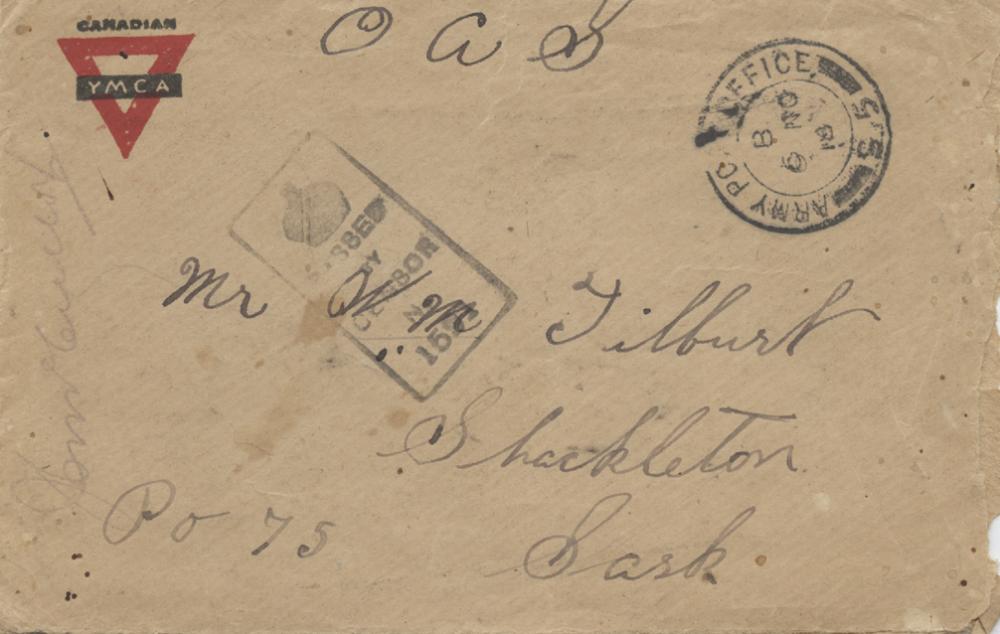 CANADIAN
YMCA
O A S
ARMY POST OFFICE S.5
B
9 NO
18
PASSED
BY
CENSOR
Mr Wm Tilburt
Shackleton
Po 75 Sask